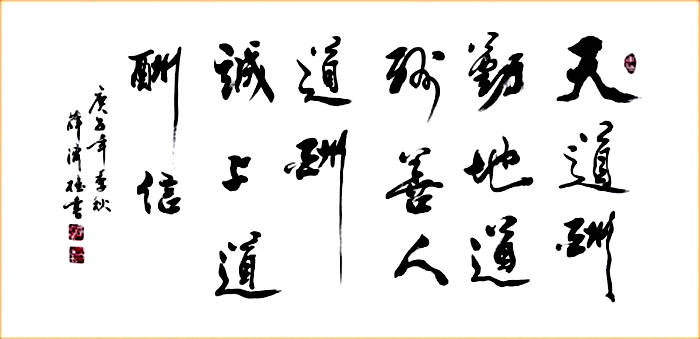 天道酬
勤地道
酬善人
道酬
誠道
酬信
庚子年季秋
薛書